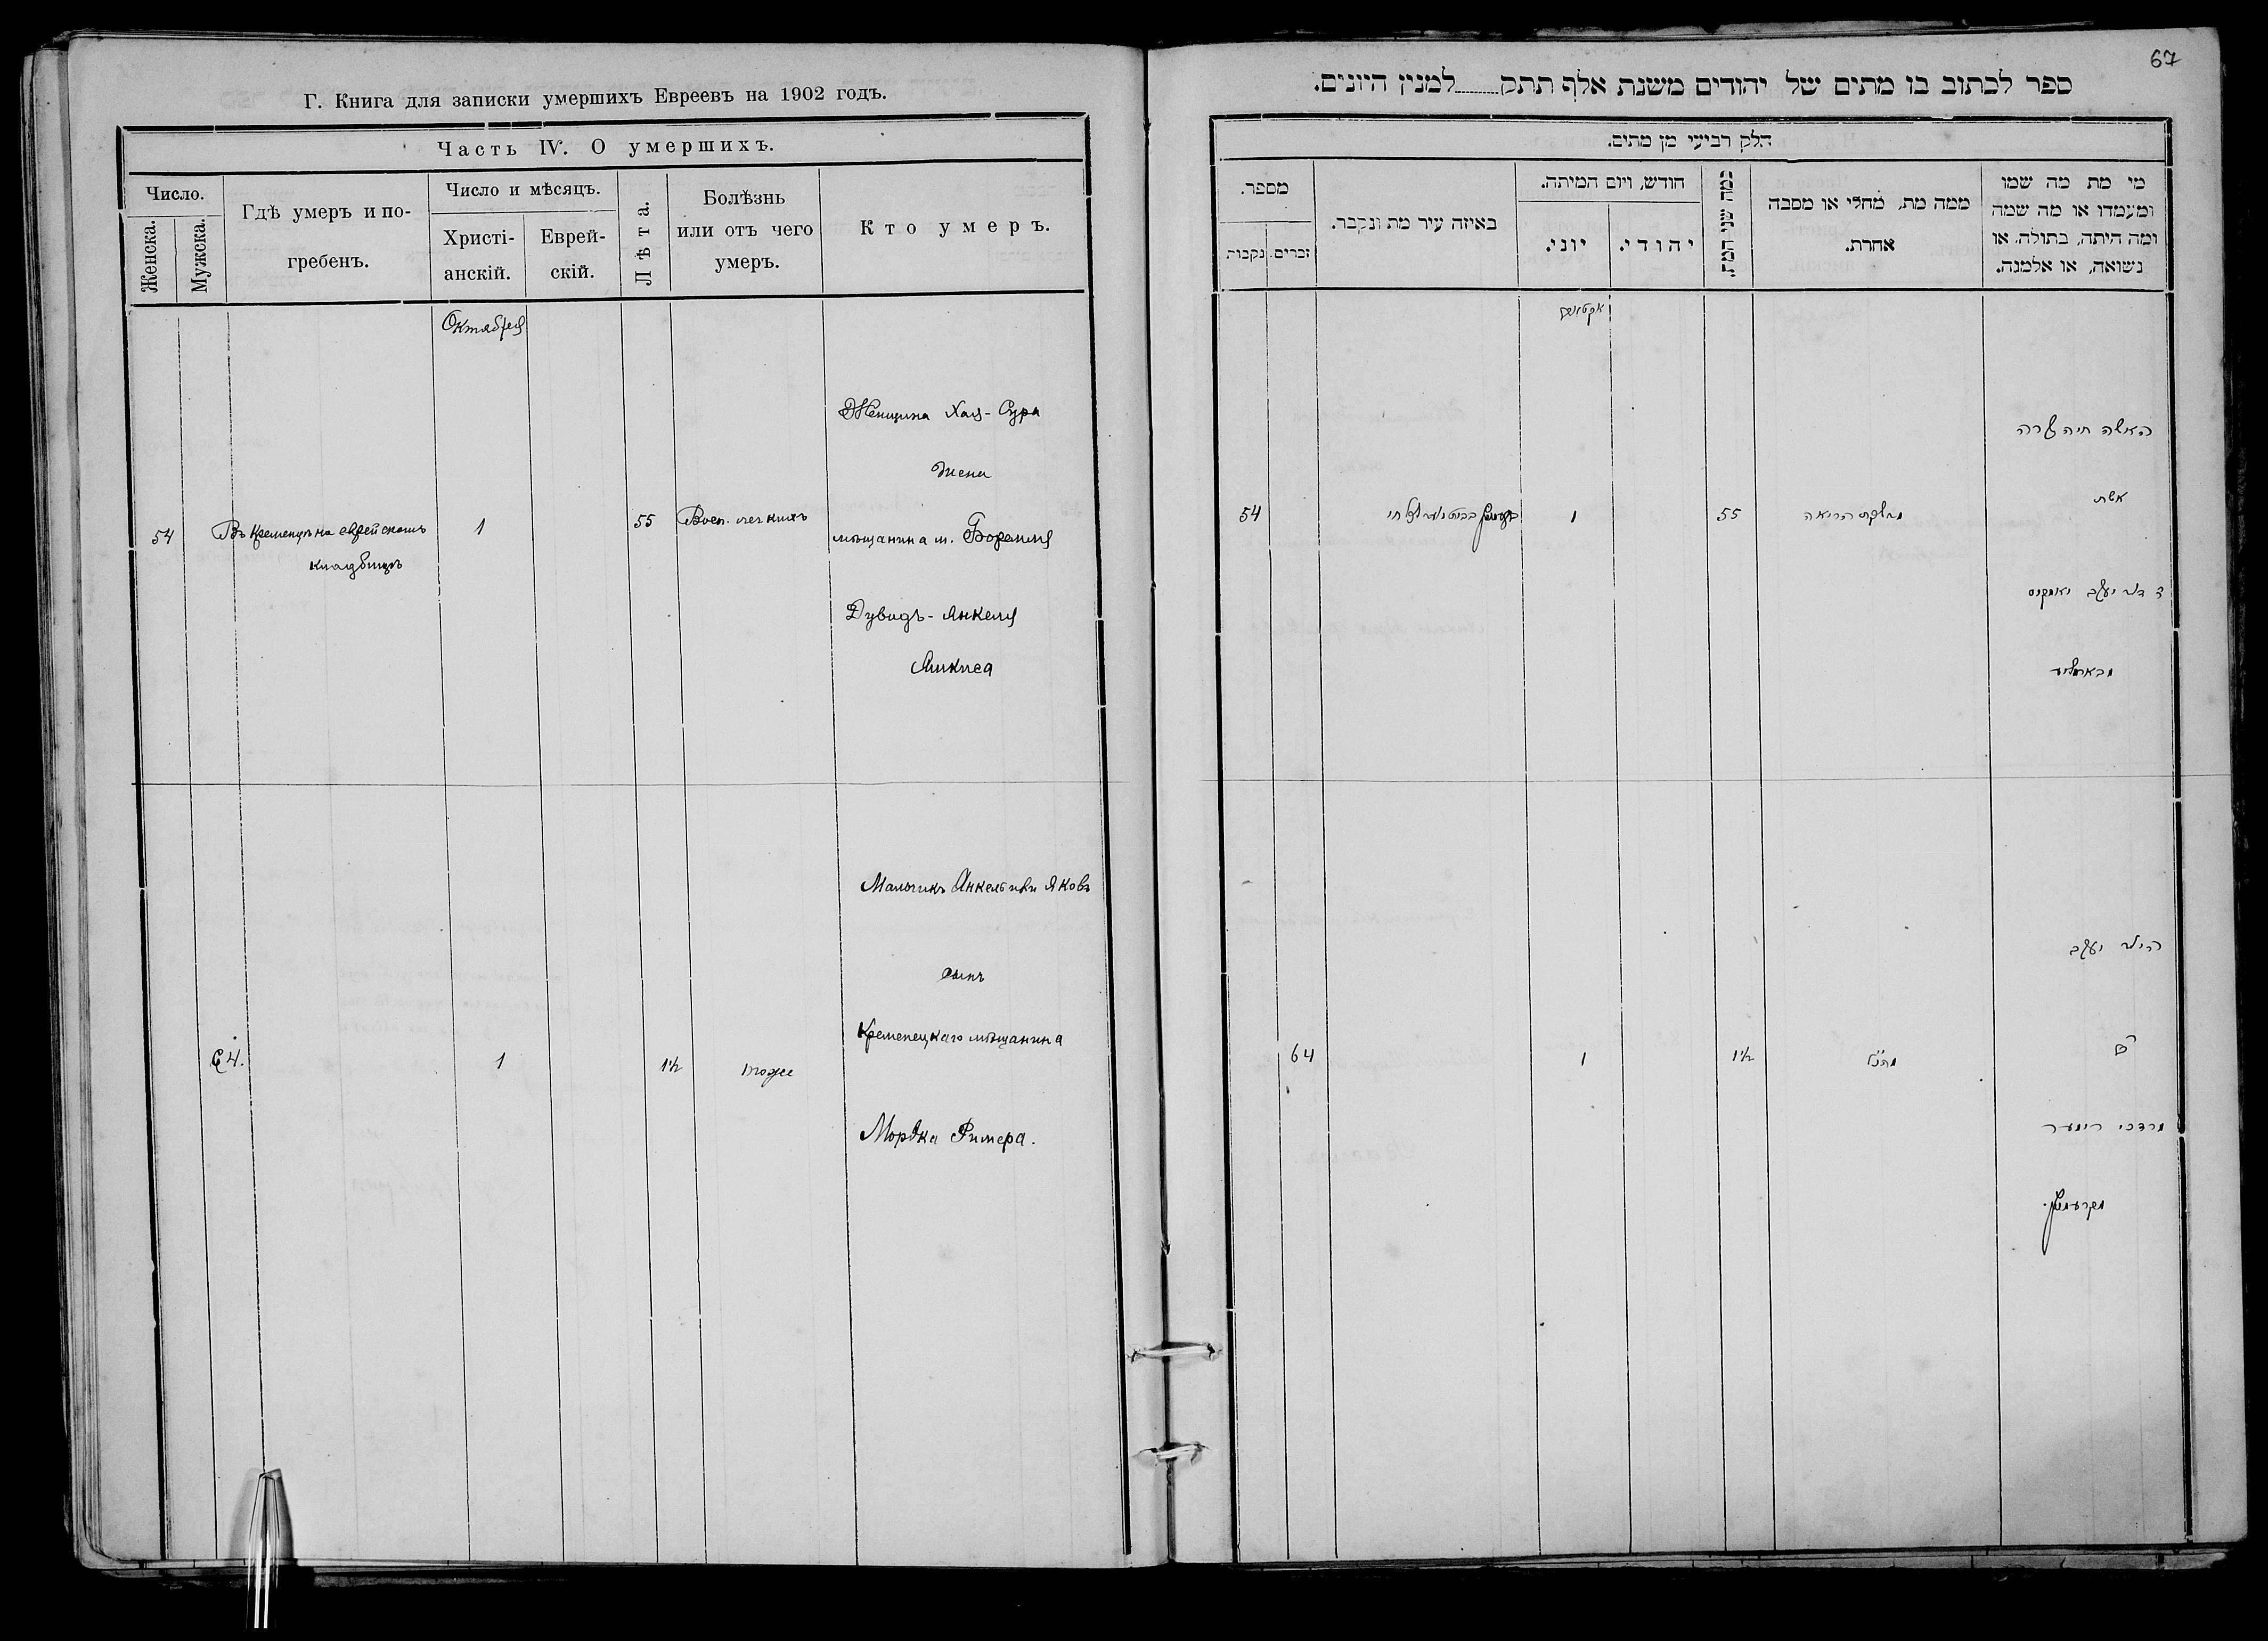 Г. Книга для записки умершихъ Евреевъ на 1902 годъ.
Часть IV. О умершихъ.
Число.
Женска.
Мужска.
Гдѣ умеръ и по-
гребенъ.
Число и мѣсяцъ.
Христі-
анскій.
Еврей-
скій.
Лѣта.
Болѣзнь
или отъ чего
умеръ.
Кто умеръ.
Октября
54
Въ Кременцѣ на еврейскомъ
кладбищѣ
1
55
Восп. легкихъ
Женщина Хая-Сура
жена
мѣщанина м. Боремля
Дувидъ-Янкеля
64.
1
1½
тоже
Мальчикъ Янкель или Яковъ
сынъ
Кременецкаго мѣщанина
Мордка Римера.
67
ספר לכתוב בו מתים של יהודים משנת אלף תתק למנין היונים.
חלק רביעי מן מתים.
מספר.
נקבות
זכרים.
באיזה עיר מת ונקבר.
חודש, ויום המיתה.
יוני.
יהודי.
כמה שני המת.
ממה מת, מחלי או מסבה
אחרת.
מי מת מה שמו
ומעמדו או מה שמה
ומה היתה, בתולה, או
נשואה, או אלמנה.
54
1
55
הריאה
האשה חיה שרה
אשת
יעקב
64
1
1½
הילד יעקב
מרדכי רימער